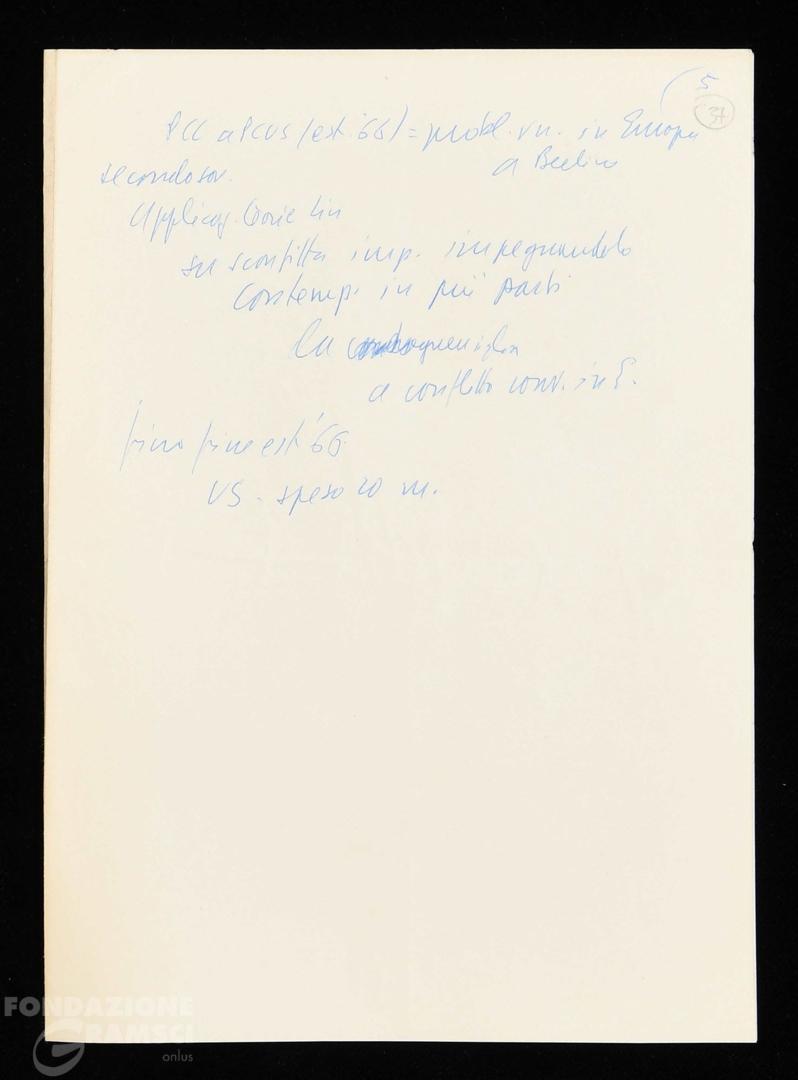 5
37
PCC a PCUS (est. 66) = probl. vn. in Europa
secondo sov. a Berlino
Applicaz. teorie Lin
su sconfitta imp. impegnandolo
contemp. in più parti
la guerriglia
a conflitto conv. in E.
fino fine est. '66
US - speso 20 m.
FONDAZIONE
GRAMSCI
onlus